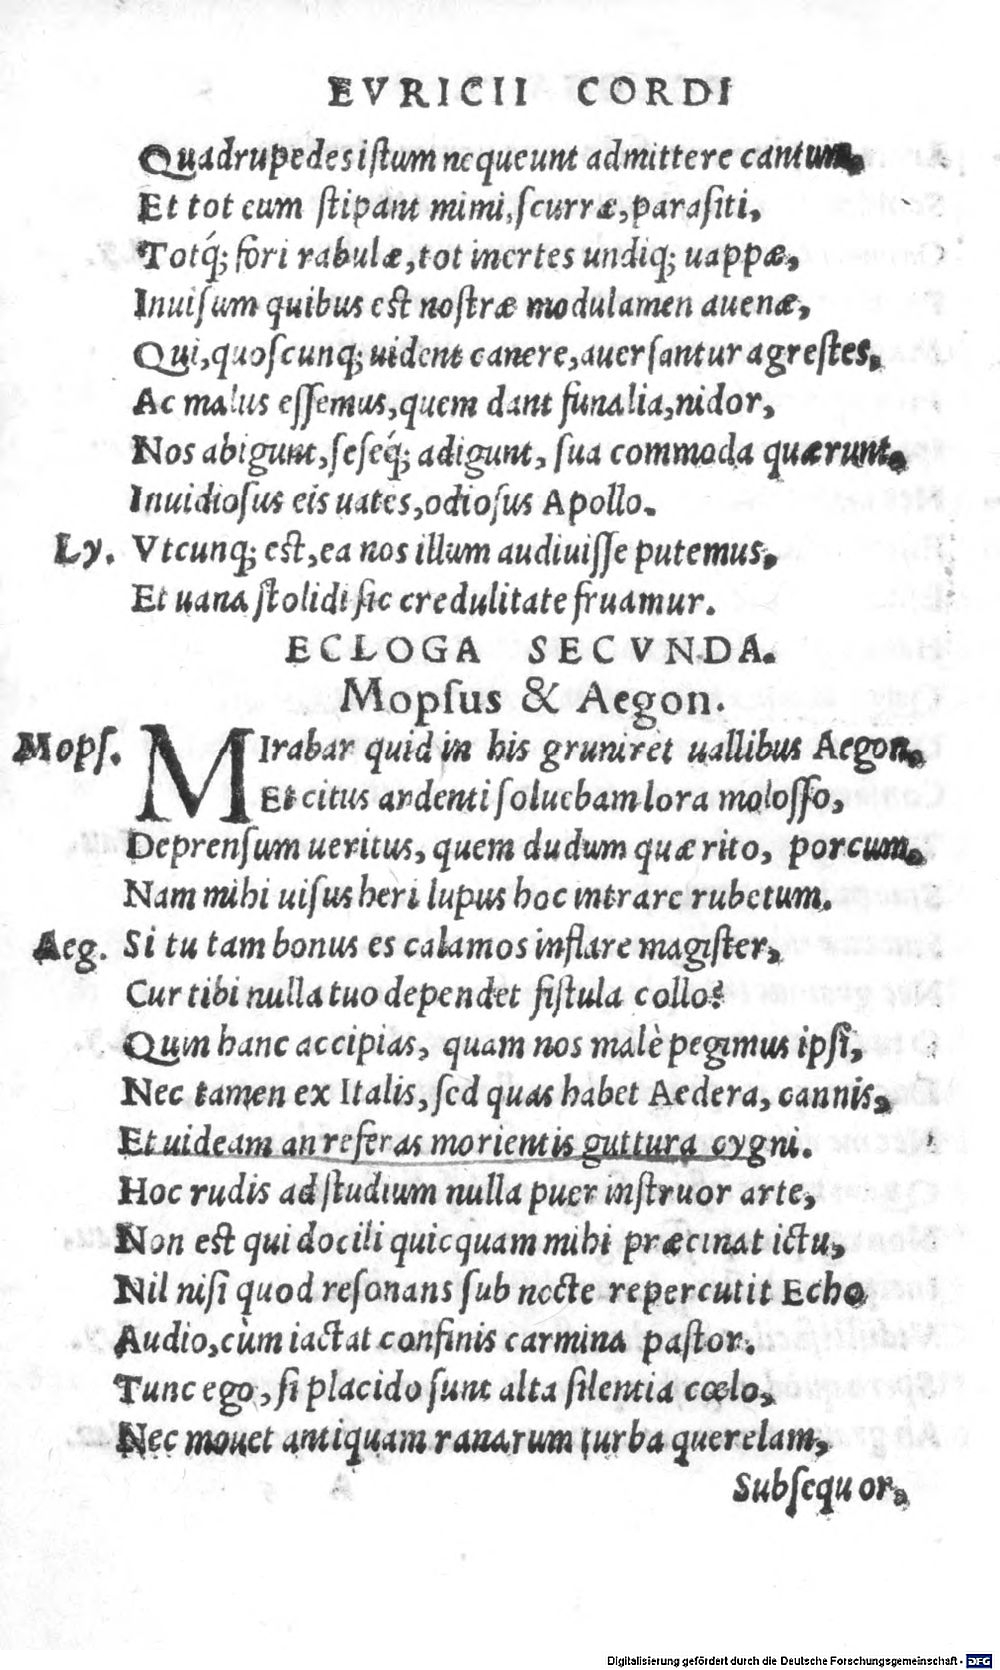 EVRICII CORDI
Quadrupedes iſtum nequeunt admittere cantum,
Et tot eum ſtipant mimi, ſcurræ, paraſiti,
Totq́; fori rabulæ, tot inertes undiq; uappæ,
Inuiſum quibus eſt noſtræ modulamen auenæ,
Qui, quoſcunq; uident canere, auerſantur agreſtes,
Ac malus eſſemus, quem dant funalia, nidor,
Nos abigunt, ſeſeq́; adigunt, ſua commoda quærunt,
Inuidioſus eis uates, odioſus Apollo.
Ly. Vtcunq; eſt, ea nos illum audiuiſſe putemus,
Et uana ſtolidi ſic credulitate fruamur.
ECLOGA SECVNDA.
Mopſus & Aegon.
Mopſ. MIrabar quid in his gruniret uallibus Aegon,
Et citus ardenti ſoluebam lora moloſſo,
Deprenſum ueritus, quem dudum quærito, porcum,
Nam mihi uiſus heri lupus hoc intrare rubetum.
Aeg. Si tu tam bonus es calamos inflare magiſter,
Cur tibi nulla tuo dependet fiſtula collo?
Quin hanc accipias, quam nos malè pegimus ipſi,
Nec tamen ex Italis, ſed quas habet Aedera, cannis,
Et uideam an referas morientis guttura cygni.
Hoc rudis ad ſtudium nulla puer inſtruor arte,
Non eſt qui docili quicquam mihi præcinat ictu,
Nil niſi quod reſonans ſub nocte repercutit Echo
Audio, cùm iactat confinis carmina paſtor.
Tunc ego, ſi placido ſunt alta ſilentia cœlo,
Nec mouet antiquam ranarum turba querelam,
Subſequor,
Digitalisierung gefördert durch die Deutsche Forschungsgemeinschaft - DFG